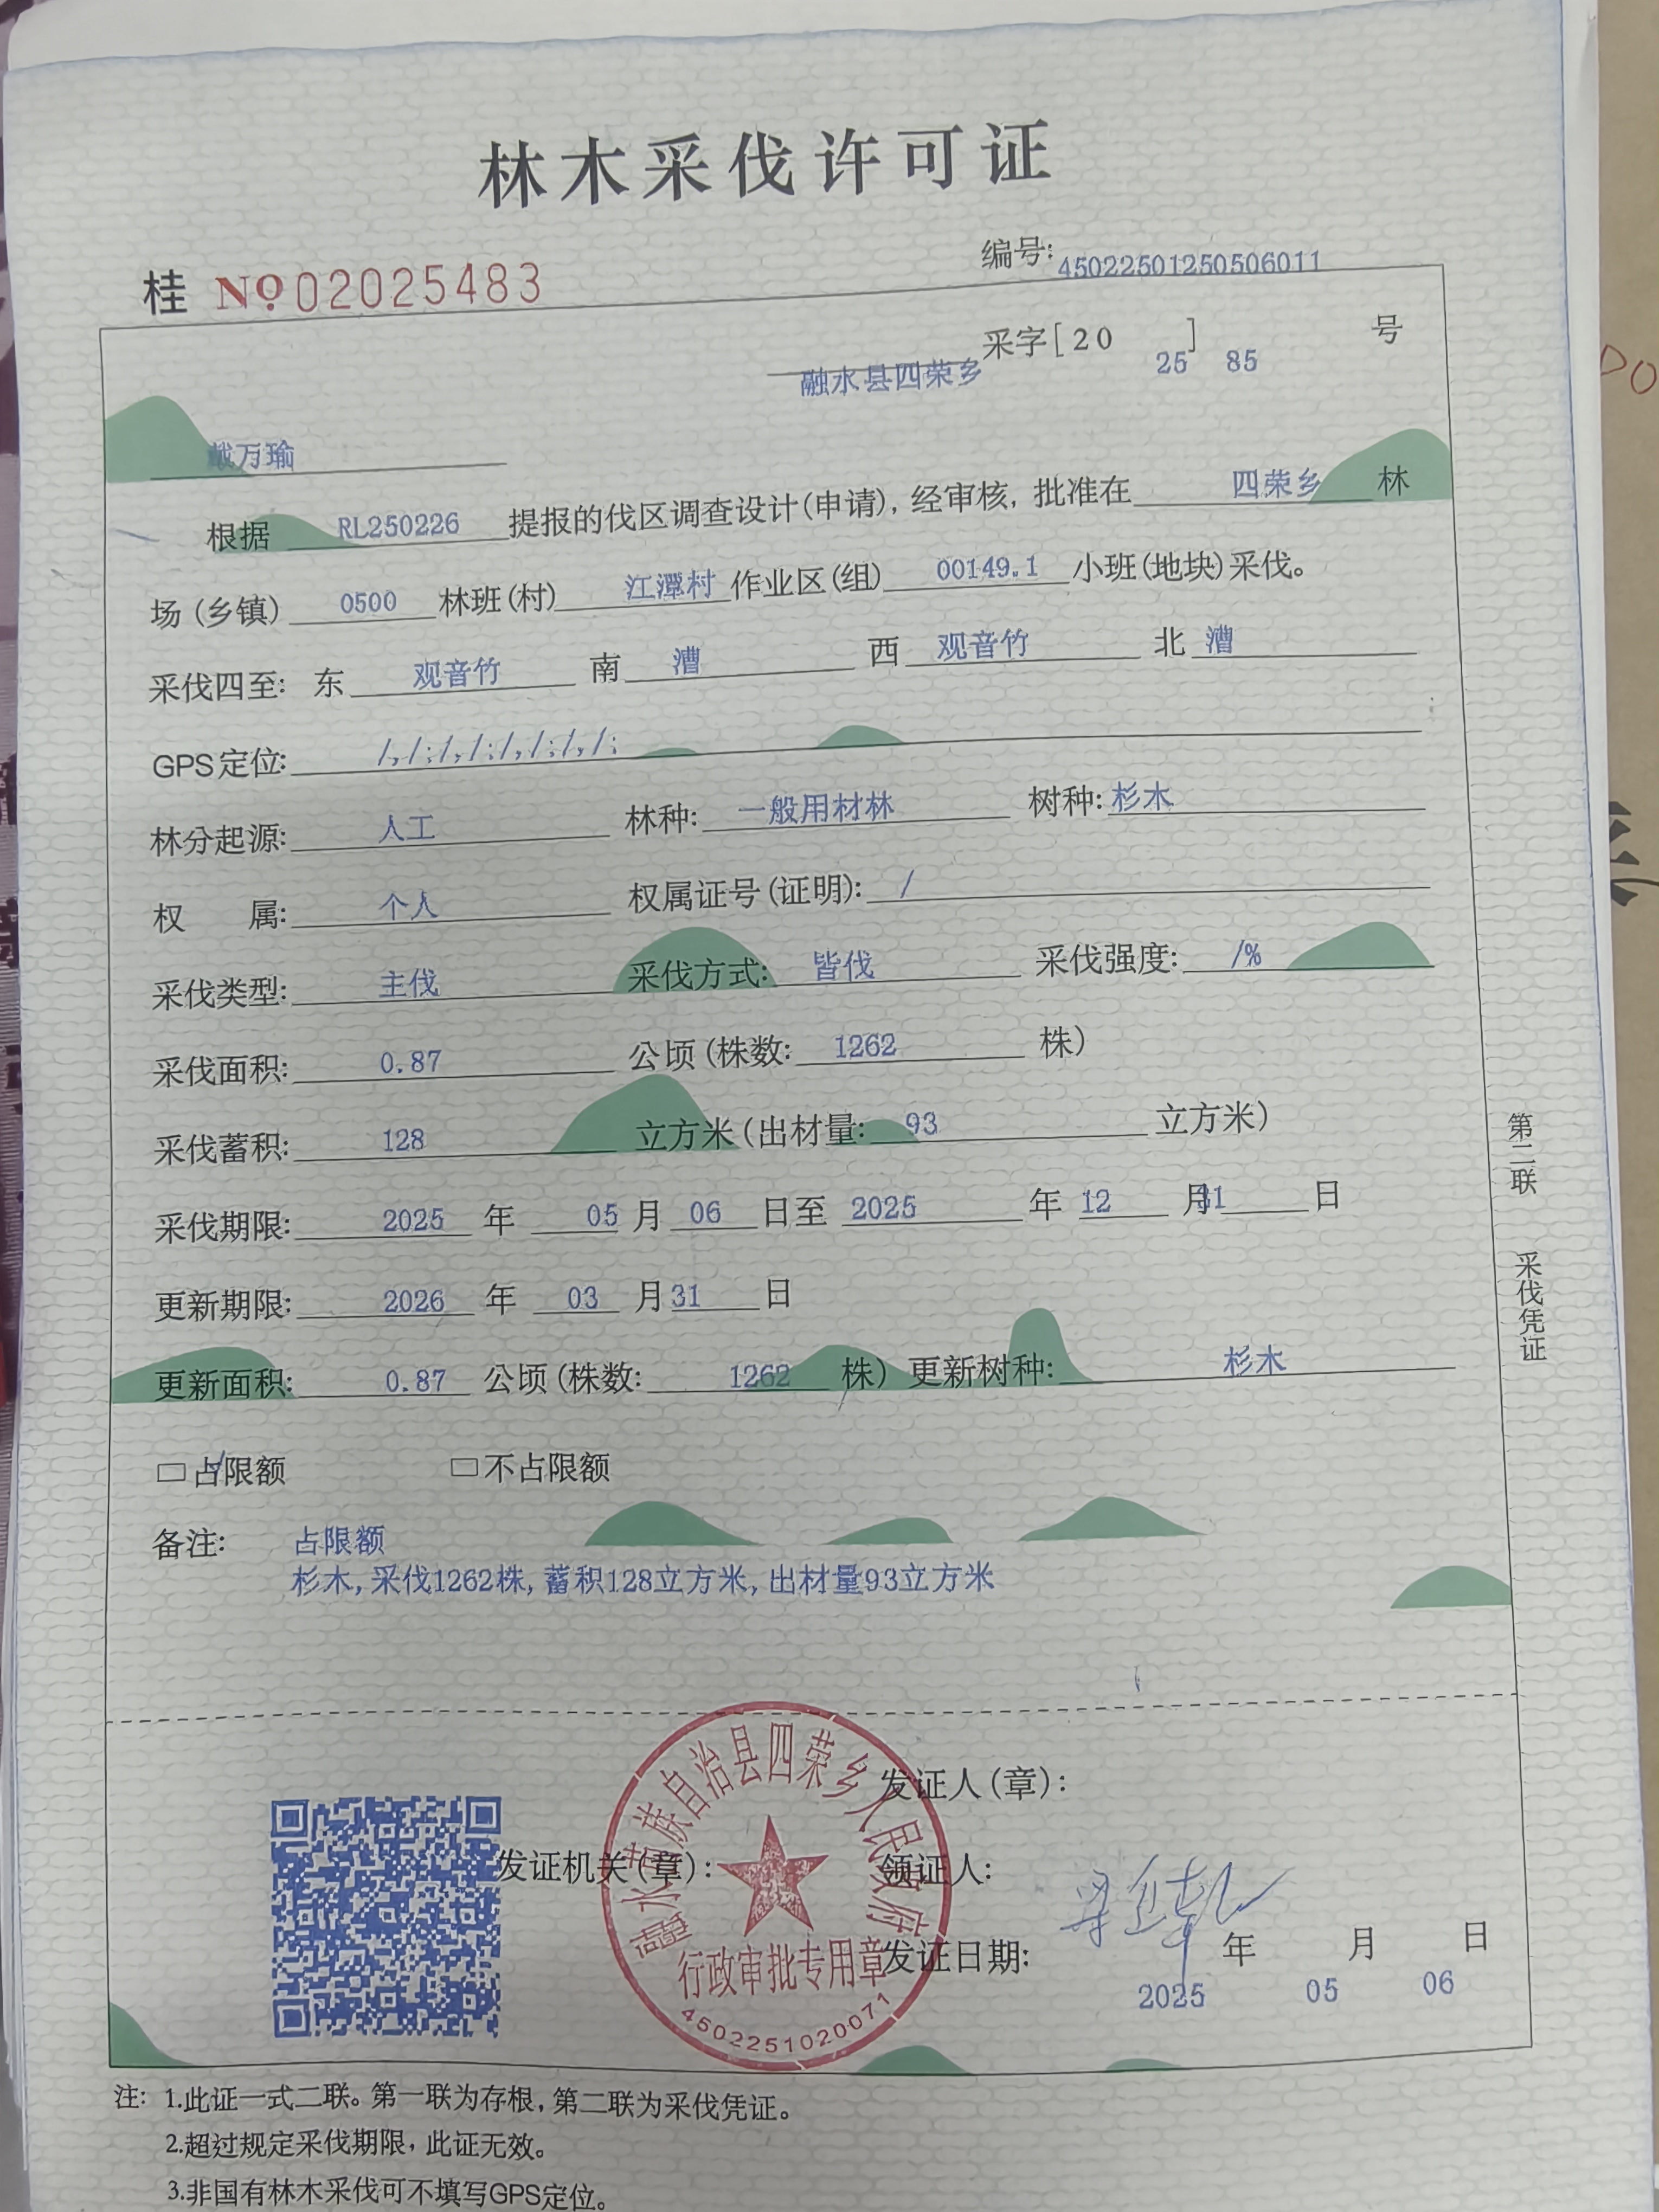 林木采伐许可证
桂 No 02025483 编号: 45022501250506011
融水县四荣乡 采字[2025] 85 号
戴万瑜
根据 RL250226 提报的伐区调查设计(申请), 经审核, 批准在 四荣乡 林
场(乡镇) 0500 林班(村) 江潭村 作业区(组) 00149.1 小班(地块)采伐。
采伐四至: 东 观音竹 南 漕 西 观音竹 北 漕
GPS定位: /,/;/,/;/,/;/,/;
林分起源: 人工 林种: 一般用材林 树种: 杉木
权 属: 个人 权属证号(证明): /
采伐类型: 主伐 采伐方式: 皆伐 采伐强度: /%
采伐面积: 0.87 公顷(株数: 1262 株)
采伐蓄积: 128 立方米(出材量: 93 立方米)
采伐期限: 2025 年 05 月 06 日至 2025 年 12 月 31 日
更新期限: 2026 年 03 月 31 日
更新面积: 0.87 公顷(株数: 1262 株) 更新树种: 杉木
□占限额 □不占限额
备注: 占限额
杉木, 采伐1262株, 蓄积128立方米, 出材量93立方米
发证人(章):
发证机关(章): 领证人:
融水苗族自治县四荣乡人民政府
行政审批专用章
4502251020071
发证日期: 2025 年 05 月 06 日
第二联 采伐凭证
注: 1.此证一式二联。第一联为存根, 第二联为采伐凭证。
2.超过规定采伐期限, 此证无效。
3.非国有林木采伐可不填写GPS定位。